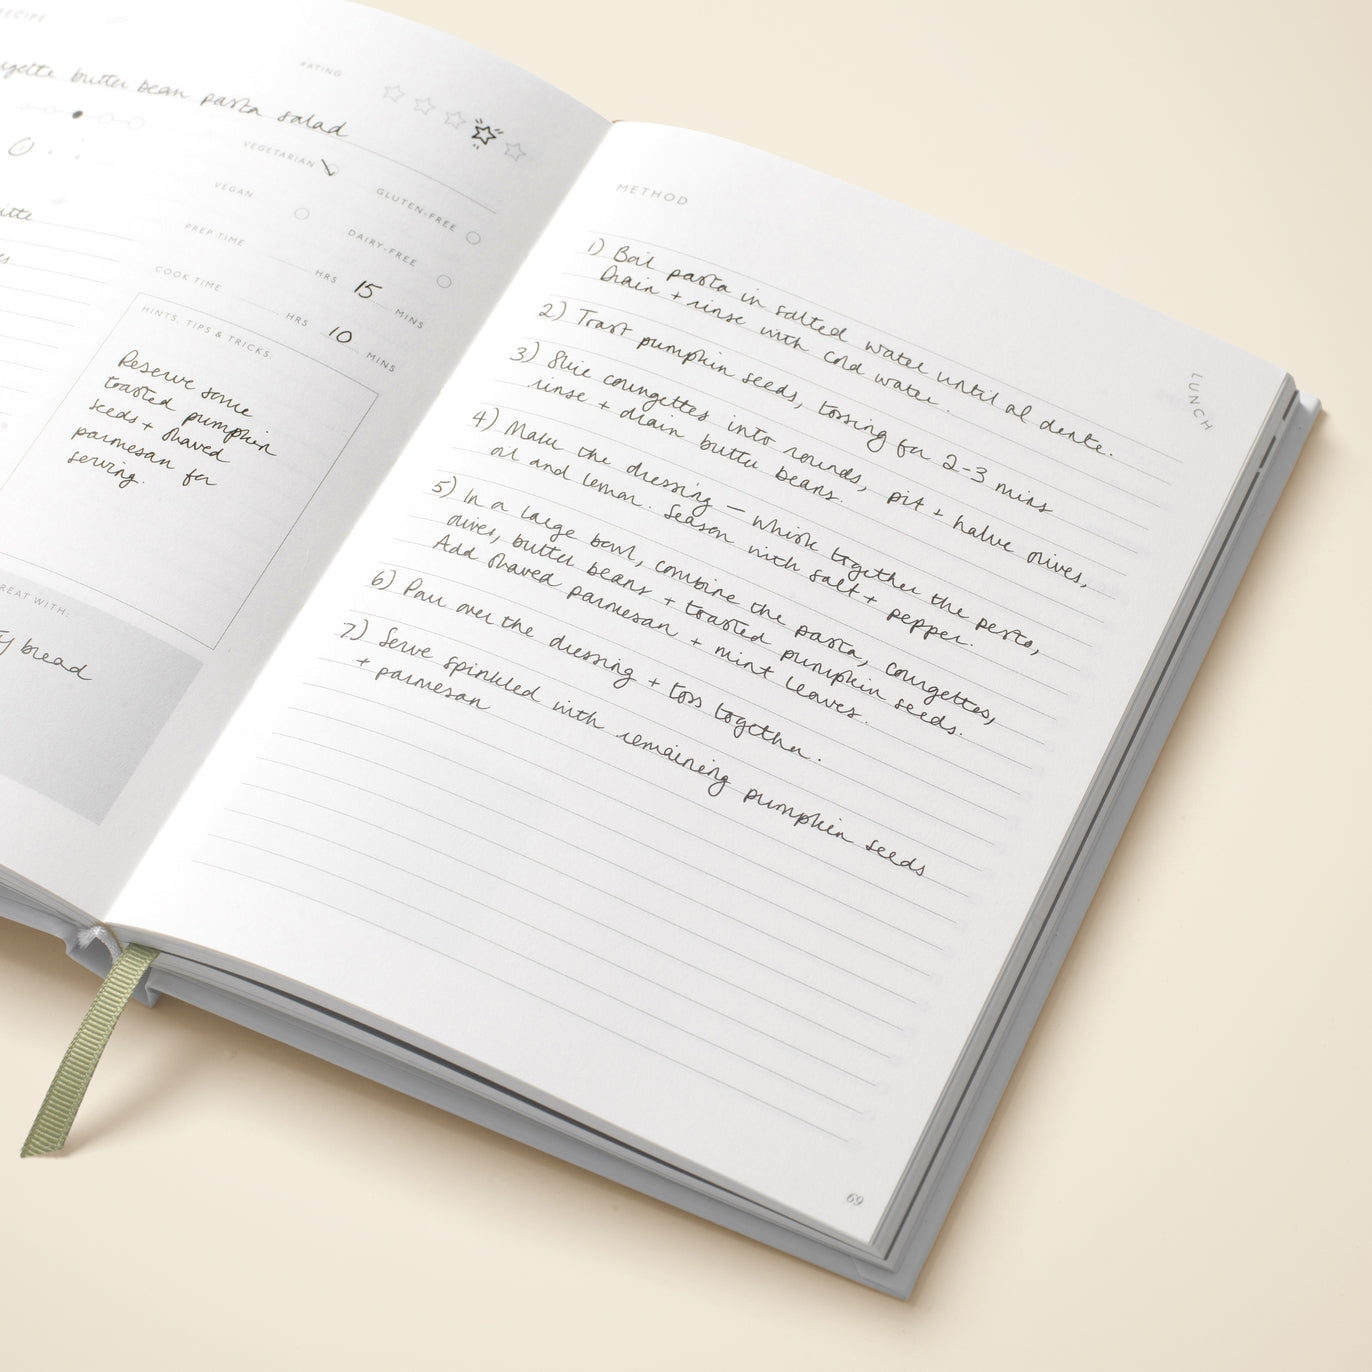 RECIPE
butter bean pasta salad
RATING
VEGETARIAN
GLUTEN-FREE
VEGAN
DAIRY-FREE
PREP TIME HRS 15 MINS
COOK TIME HRS 10 MINS
HINTS, TIPS & TRICKS
Reserve some
toasted pumpkin
seeds + shaved
parmesan for
serving.
WITH:
bread
METHOD
1) Boil pasta in salted water until al dente.
Drain + rinse with cold water.
2) Toast pumpkin seeds, tossing for 2-3 mins
3) Slice courgettes into rounds, pit + halve olives,
rinse + drain butter beans.
4) Make the dressing – whisk together the pesto,
oil and lemon. Season with salt + pepper.
5) In a large bowl, combine the pasta, courgettes,
olives, butter beans + toasted pumpkin seeds.
Add shaved parmesan + mint leaves.
6) Pour over the dressing + toss together.
7) Serve spinkled with remaining pumpkin seeds
+ parmesan
LUNCH
69